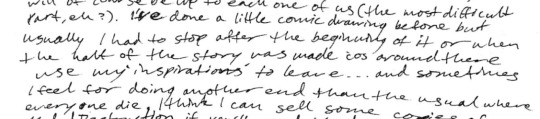 will of course be up to each one of us (the most difficult
part, eh?). I've done a little comic drawing before but
usually I had to stop after the beginning of it or when
the half of the story was made 'cos around there
use my 'inspirations' to leave... and sometimes
I feel for doing another end than the usual where
everyone die, I think I can sell some copies of